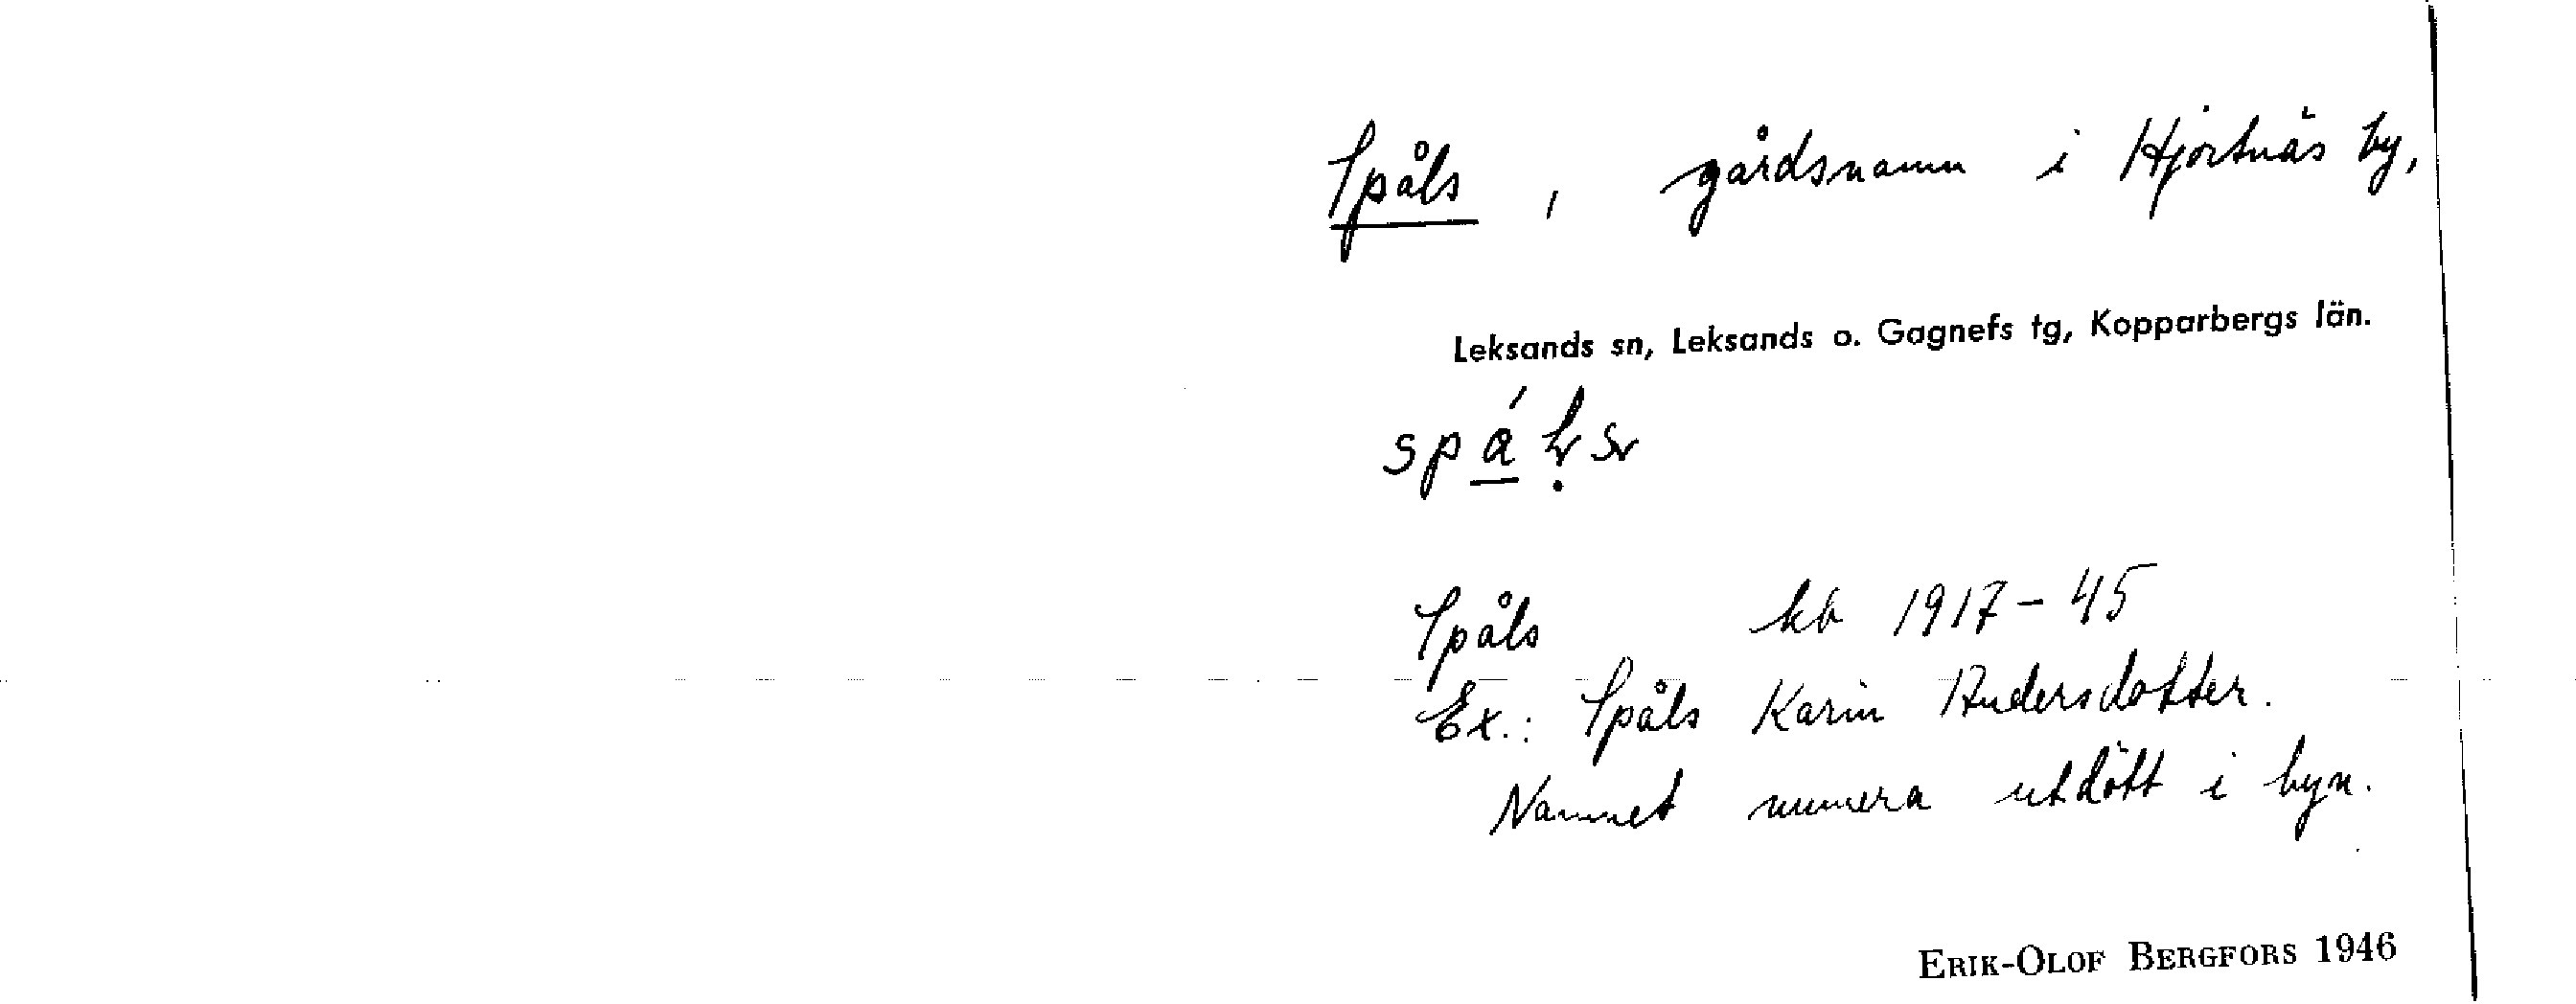 Spåls, gårdsnamn i Hjortnäs by,
Leksands sn, Leksands o. Gagnefs tg, Kopparbergs län.
Spåls kb 1917-45
Ex.: Spåls Karin Andersdotter.
Namnet numera utdött i byn.
ERIK-OLOF BERGFORS 1946